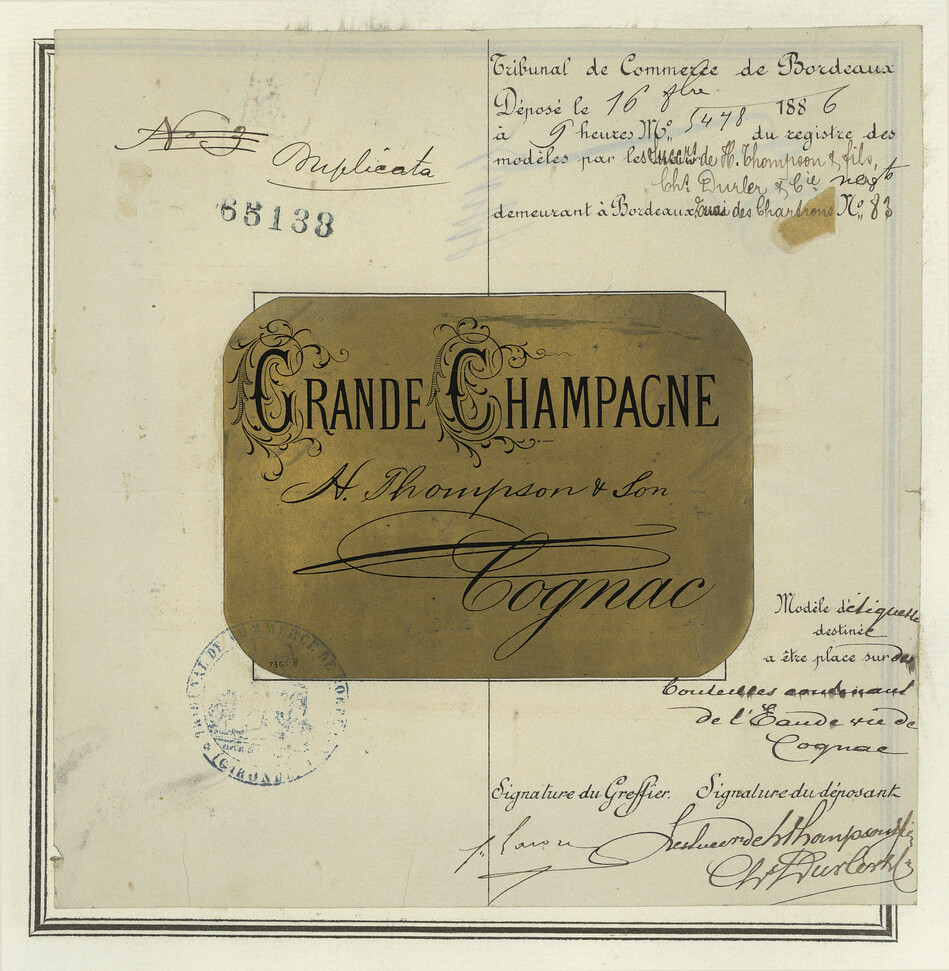 Tribunal de Commerce de Bordeaux
Déposé le 16 8bre 1886
à 9 heures No. 5478 du registre des
modèles par les succrs de H. Thompson & fils,
Chs Durler & Cie negts
demeurant à Bordeaux, quai des Chartrons No. 83
No 9
Duplicata
65138
GRANDE CHAMPAGNE
H. Thompson & Son
Cognac
736
TRIBUNAL DE COMMERCE DE BORDEAUX
(GIRONDE)
Modèle d'étiquette
destinée
a être place sur des
bouteilles contenant
de l'Eau de vie de
Cognac
Signature du Greffier. Signature du déposant
Les succrs de H Thompson & fils
Chs Durler & Cie